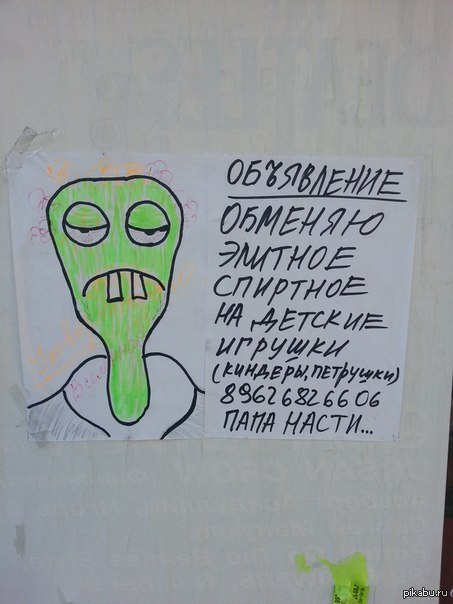 ОБЪЯВЛЕНИЕ
ОБМЕНЯЮ
ЭЛИТНОЕ
СПИРТНОЕ
НА ДЕТСКИЕ
ИГРУШКИ
(КИНДЕРЫ, ПЕТРУШКИ)
89626826606
ПАПА НАСТИ...
pikabu.ru